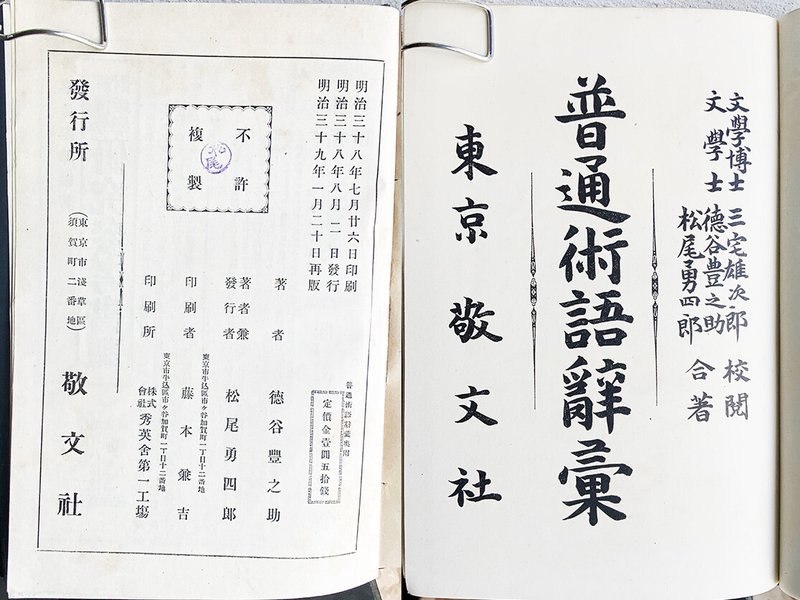 文學博士 三宅雄次郎 校閱
文學士 德谷豊之助
松尾勇四郎 合著
普通術語辭彙
東京 敬文社
明治三十八年七月廿六日印刷
明治三十八年八月二日發行
明治三十九年一月二十日再版
不許
複製
普通術語辭彙奧附
定價金壹圓五拾錢
著者 德谷豐之助
著者兼
發行者 松尾勇四郎
東京市牛込區市ヶ谷加賀町一丁目十二番地
印刷者 藤本兼吉
東京市牛込區市ヶ谷加賀町一丁目十二番地
印刷所 株式會社 秀英舍第一工塲
發行所 (東京市淺草區須賀町二番地) 敬文社